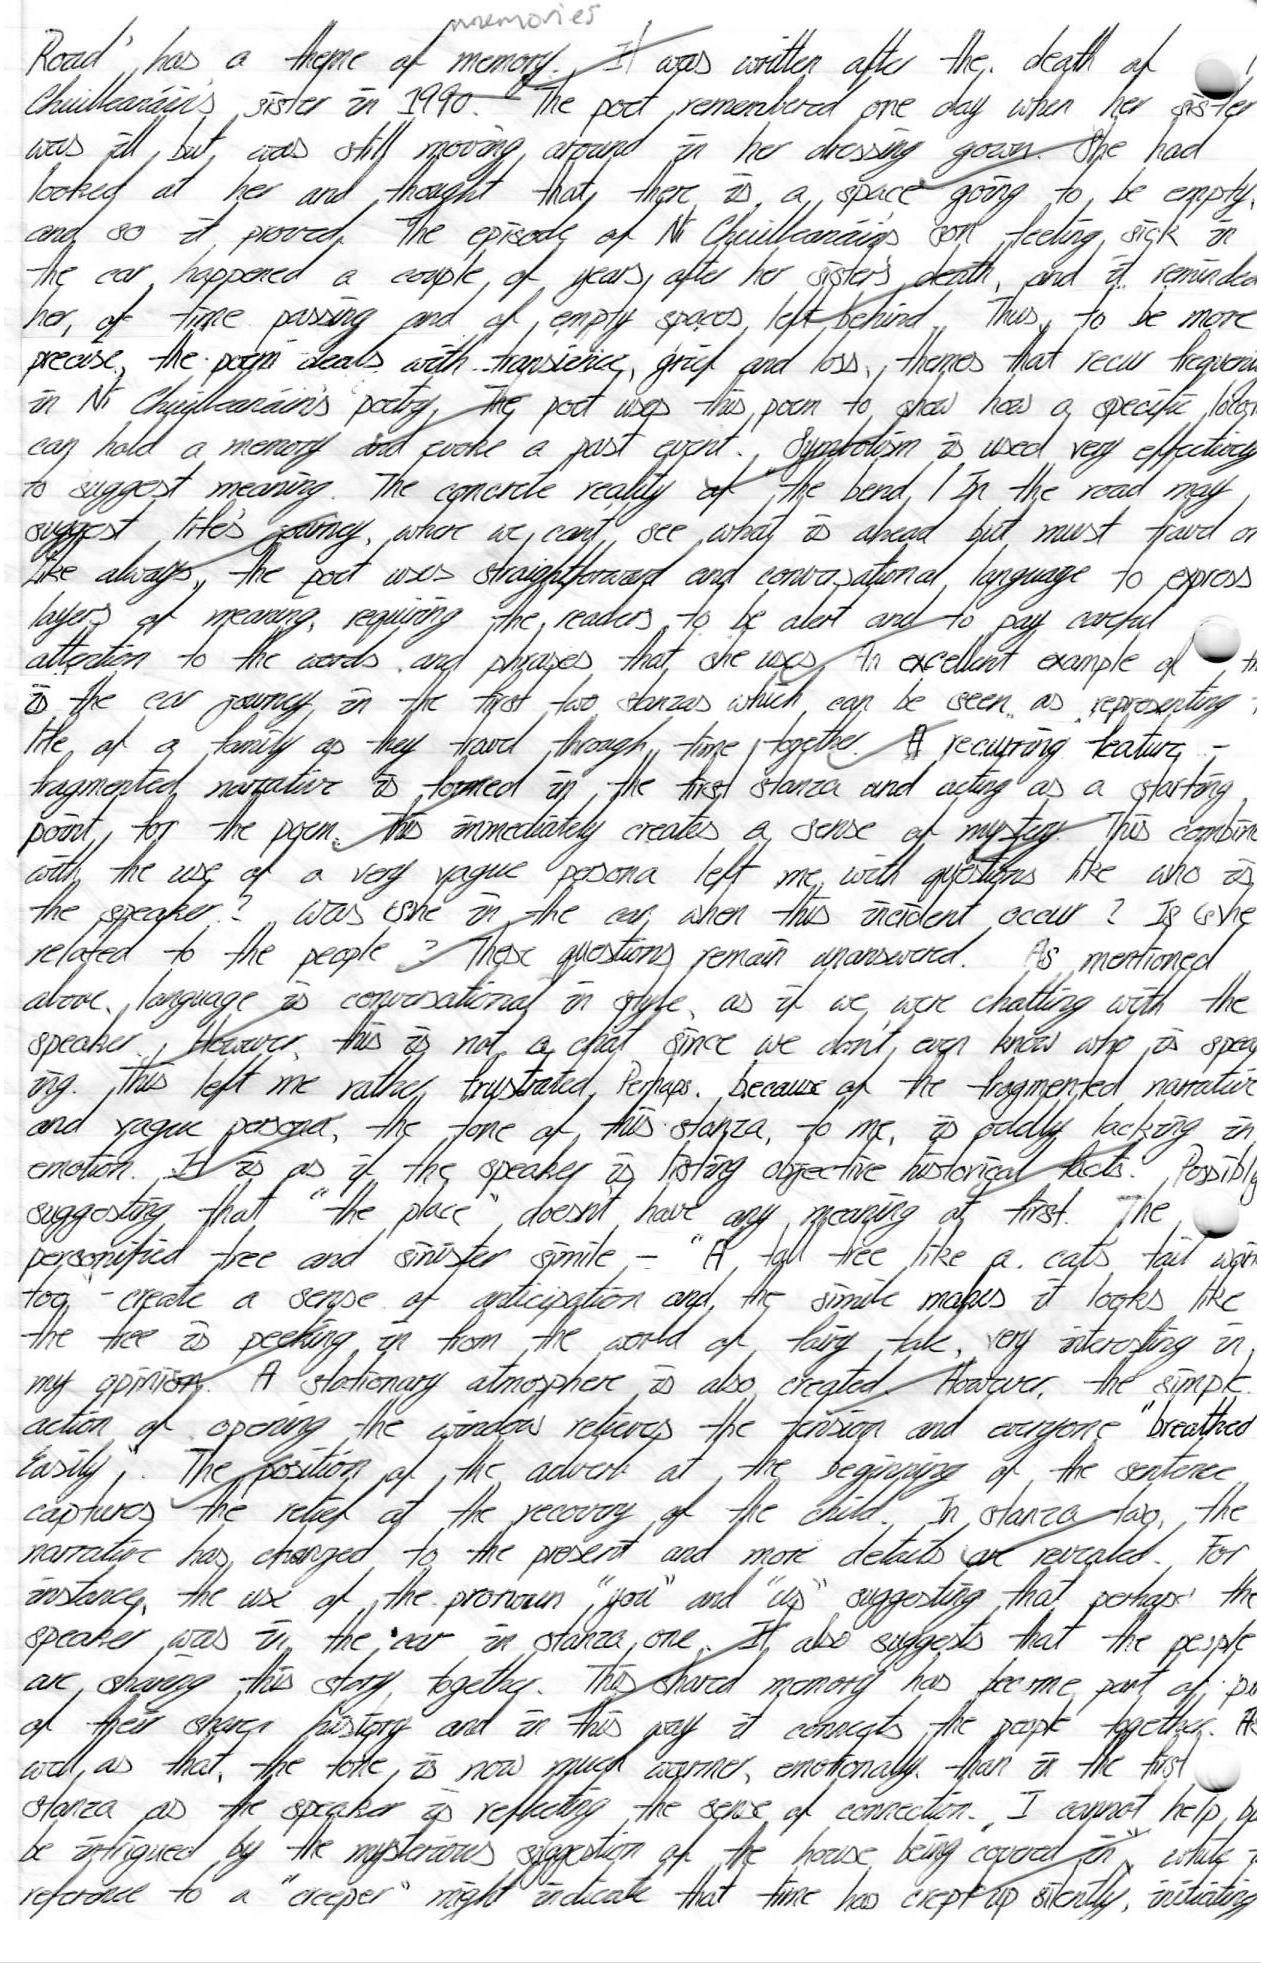 memories
Road' has a theme of memory. It was written after the death of
Chuilleanáin's sister in 1990. The poet remembered one day when her sister
was ill but was still moving around in her dressing gown. She had
looked at her and thought that there is a space going to be empty,
and so it proved. The episode of Ní Chuilleanáin's son feeling sick in
the car happened a couple of years after her sister's death, and it reminded
her of time passing and of empty spaces left behind. Thus, to be more
precise, the poem deals with transience, grief and loss, themes that recur
in Ní Chuilleanáin's poetry. The poet uses this poem to show how a specific
can hold a memory and evoke a past event. Symbolism is used very effectively
to suggest meaning. The concrete reality of the bend / In the road may
suggest life's journey, where we can't see what is ahead but must travel on
Like always, the poet uses straightforward and conversational language to express
layers of meaning, requiring the readers to be alert and to pay careful
attention to the words and phrases that she uses. An excellent example of
is the car journey in the first two stanzas which can be seen as representing
life of a family as they travel through time together. A recurring feature -
fragmented narrative is formed in the first stanza and acting as a starting
point for the poem. This immediately creates a sense of mystery. This combine
with the use of a very vague persona left me with questions like who is
the speaker? Was (s)he in the car when this incident occur? Is (s)he
related to the people? These questions remain unanswered. As mentioned
above, language is conversational in style, as if we were chatting with the
speaker. However, this is not a chat since we don't even know who is speak
ing. This left me rather frustrated. Perhaps, because of the fragmented narrative
and vague persona, the tone of this stanza, to me, is oddly lacking in
emotion. It is as if the speaker is listing objective historical facts. Possibly
suggesting that "the place" doesn't have any meaning at first. The
personified tree and sinister simile - "A tall tree like a cat's tail
too" - create a sense of anticipation and the simile makes it looks like
the tree is peeking in from the world of fairy tale, very interesting in
my opinion. A stationary atmosphere is also created. However, the simple
action of opening the window relieves the tension and everyone "breathed
Easily". The position of the adverb at the beginning of the sentence
captures the relief at the recovery of the child. In stanza two, the
narrative has changed to the present and more details are revealed. For
instance, the use of the pronoun "you" and "us" suggesting that perhaps the
speaker was in the car in stanza one. It also suggests that the people
are sharing this story together. This shared memory has become part of
of their share history and in this way it connects the people together. As
well as that, the tone is now much warmer, emotionally, than in the first
stanza as the speaker is reflecting the sense of connection. I cannot help
be intrigued by the mysterious suggestion of the house being "covered in", while
reference to a "creeper" might indicate that time has crept up silently, initiating